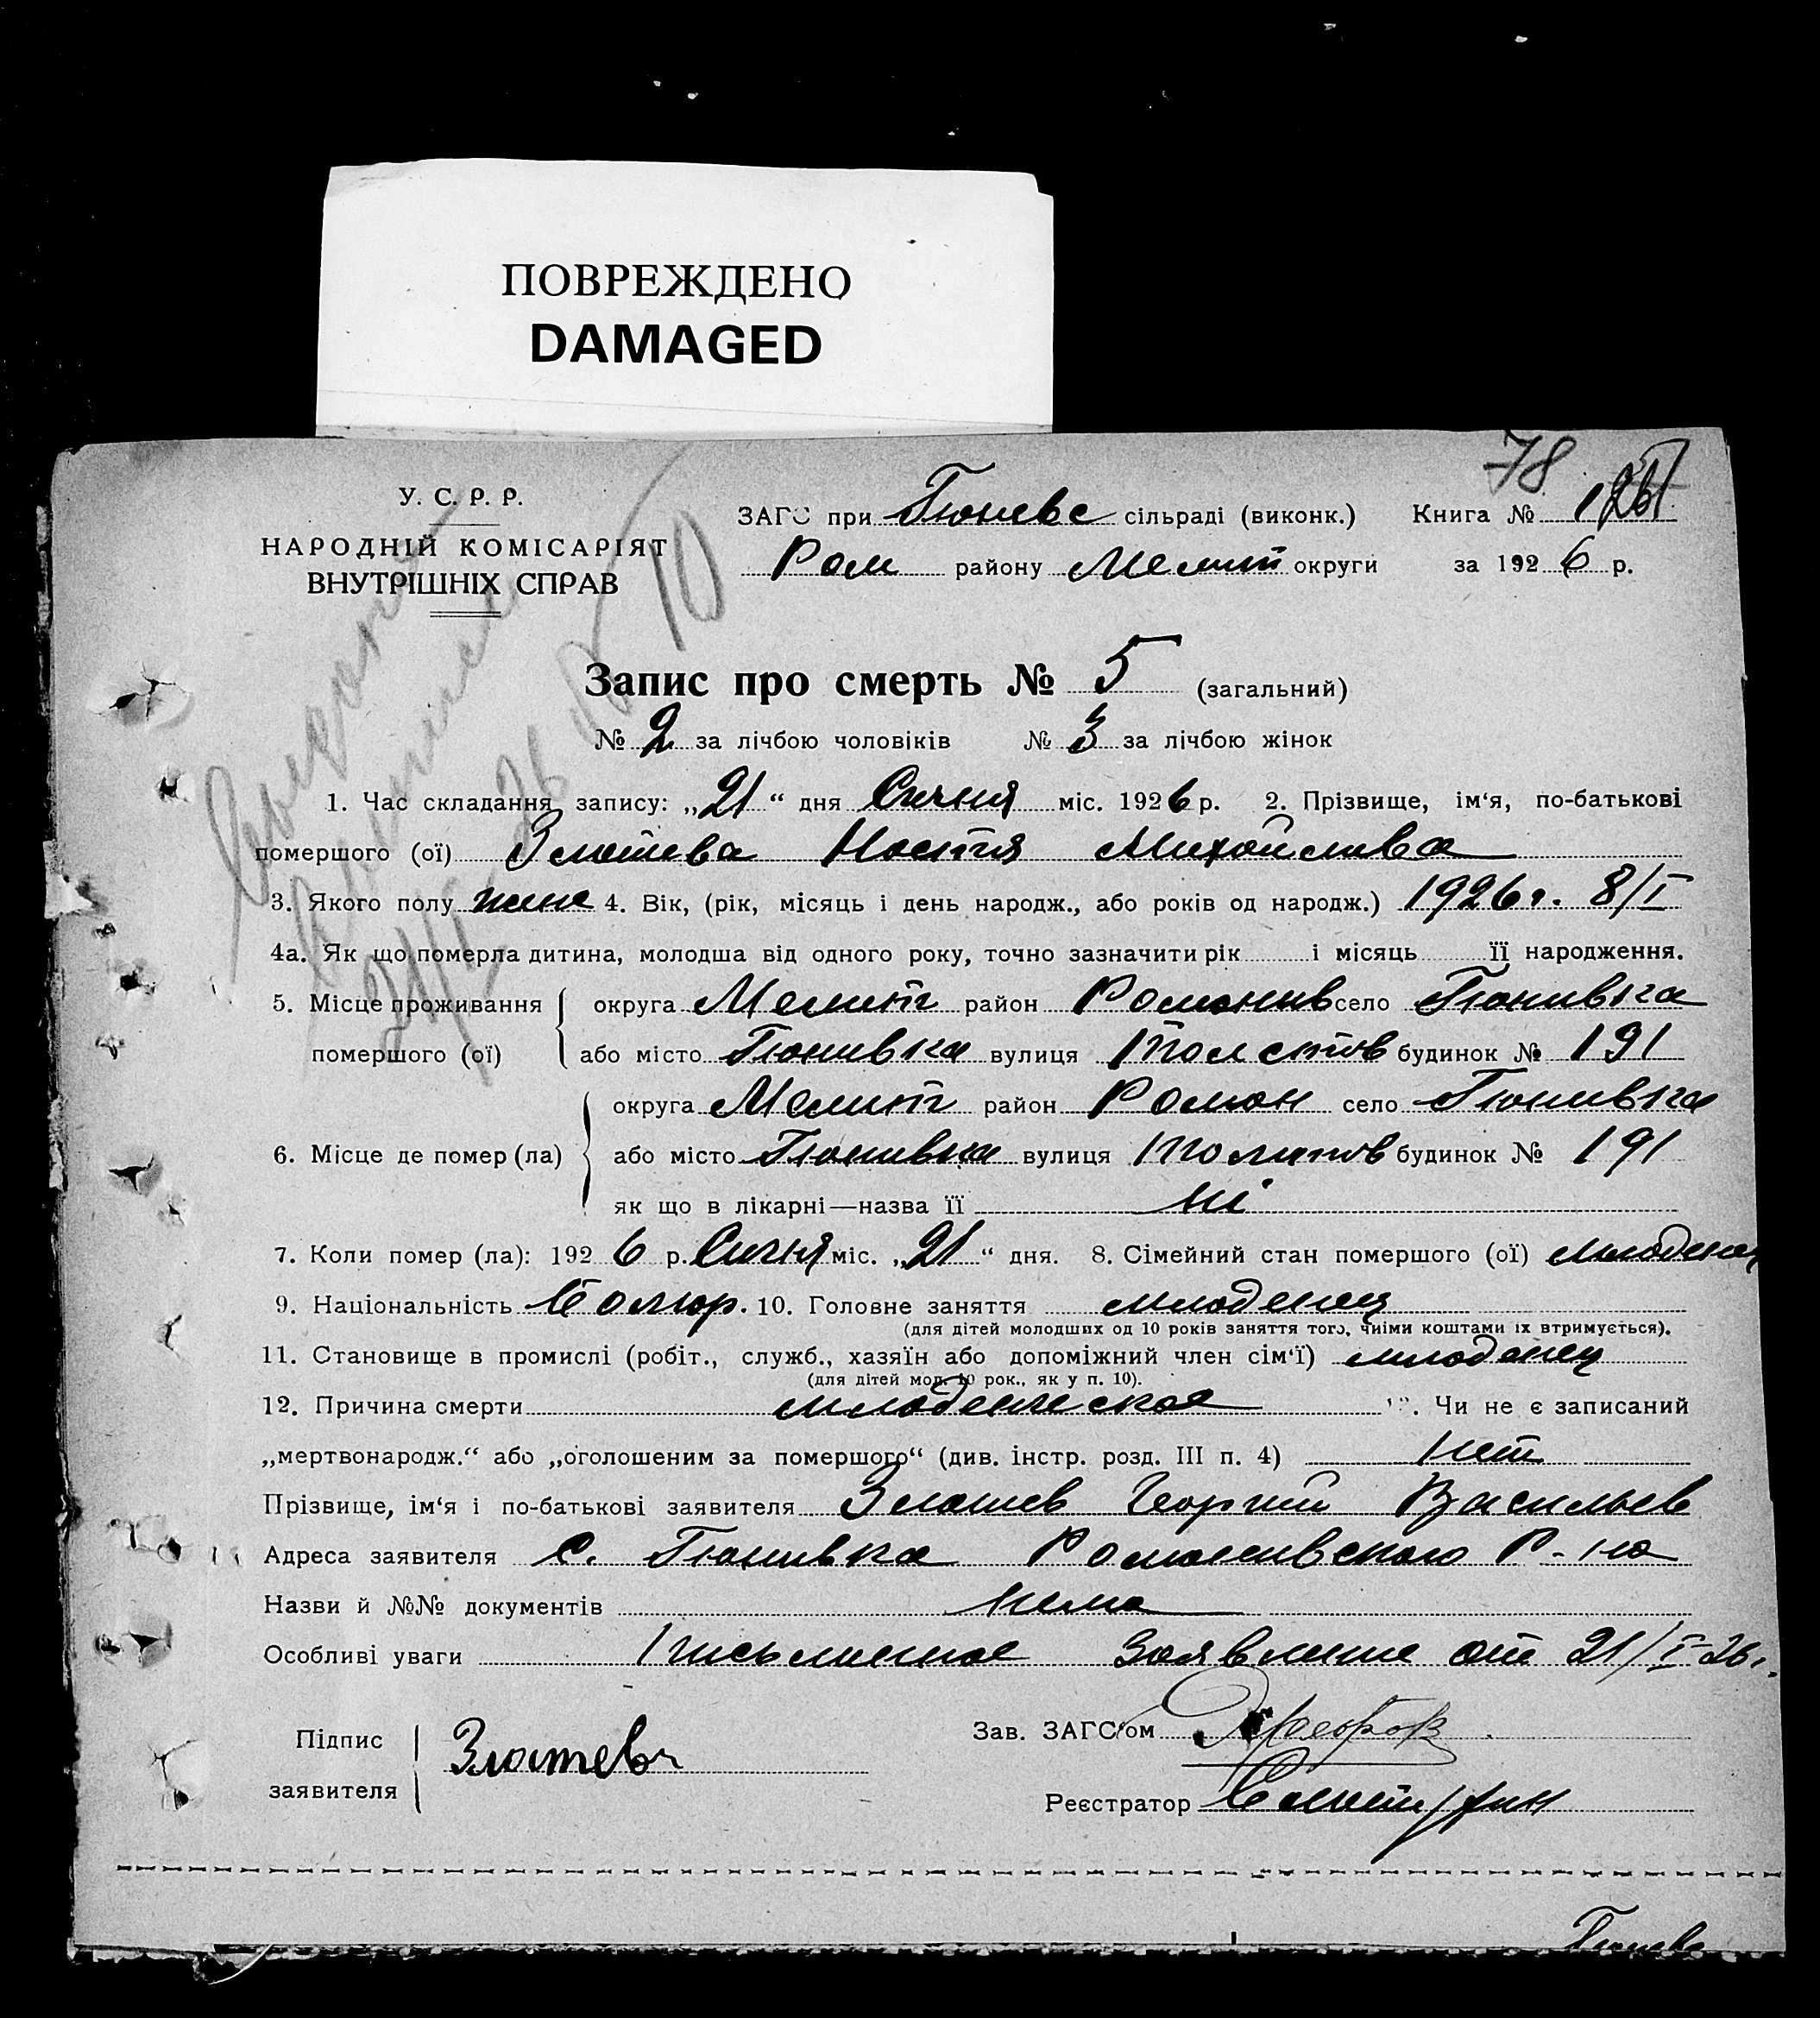 ПОВРЕЖДЕНО
DAMAGED
78
У. С. Р. Р.
НАРОДНІЙ КОМІСАРІЯТ
ВНУТРІШНІХ СПРАВ
ЗАГС при Гюневс сільраді (виконк.) Книга №
Ром району Мелит округи за 1926 р.
10
Запис про смерть № 5 (загальний)
№ 2 за лічбою чоловіків № 3 за лічбою жінок
1. Час складання запису: „21“ дня Сичня міс. 1926 р. 2. Прізвище, ім‘я, по-батькові
помершого (ої) Златева Настя Михайлива
3. Якого полу жине 4. Вік, (рік, місяць і день народж., або років од народж.) 1926 г. 8/I
4а. Як що померла дитина, молодша від одного року, точно зазначити рік і місяць її народження.
5. Місце проживання помершого (ої) округа Мелит район Романив село Гюнивка
або місто Гюнивка вулиця Толстов будинок № 191
6. Місце де помер (ла) округа Мелит район Роман село Гюнивка
або місто Гюнивка вулиця будинок № 191
як що в лікарні—назва її ні
7. Коли помер (ла): 1926 р. Сичня міс. „21“ дня. 8. Сімейний стан помершого (ої) младенец
9. Національність Болгар. 10. Головне заняття младенец
(для дітей молодших од 10 років заняття того, чиїми коштами їх втримується).
11. Становище в промислі (робіт., служб., хазяїн або допоміжний член сім‘ї) младенец
(для дітей мол. 10 рок., як у п. 10).
12. Причина смерти младенческая 13. Чи не є записаний
„мертвонародж.“ або „оголошеним за помершого“ (див. інстр. розд. III п. 4) нет
Прізвище, ім‘я і по-батькові заявителя Златев Георгий Васильев
Адреса заявителя с. Гюнивка Романивского Р-на
Назви й №№ документів нима
Особливі уваги письменное заявление от 21/I-26 г.
Підпис заявителя Златева
Зав. ЗАГС‘ом
Реєстратор
Гюневс